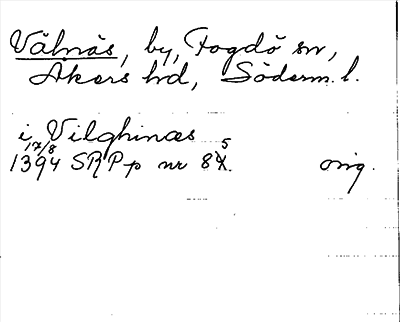 Välnäs, by, Fogdö sn,
Åkers hd, Söderm. l.
i Vilghinæs
17/8
1394 SRPp nr 85. orig.